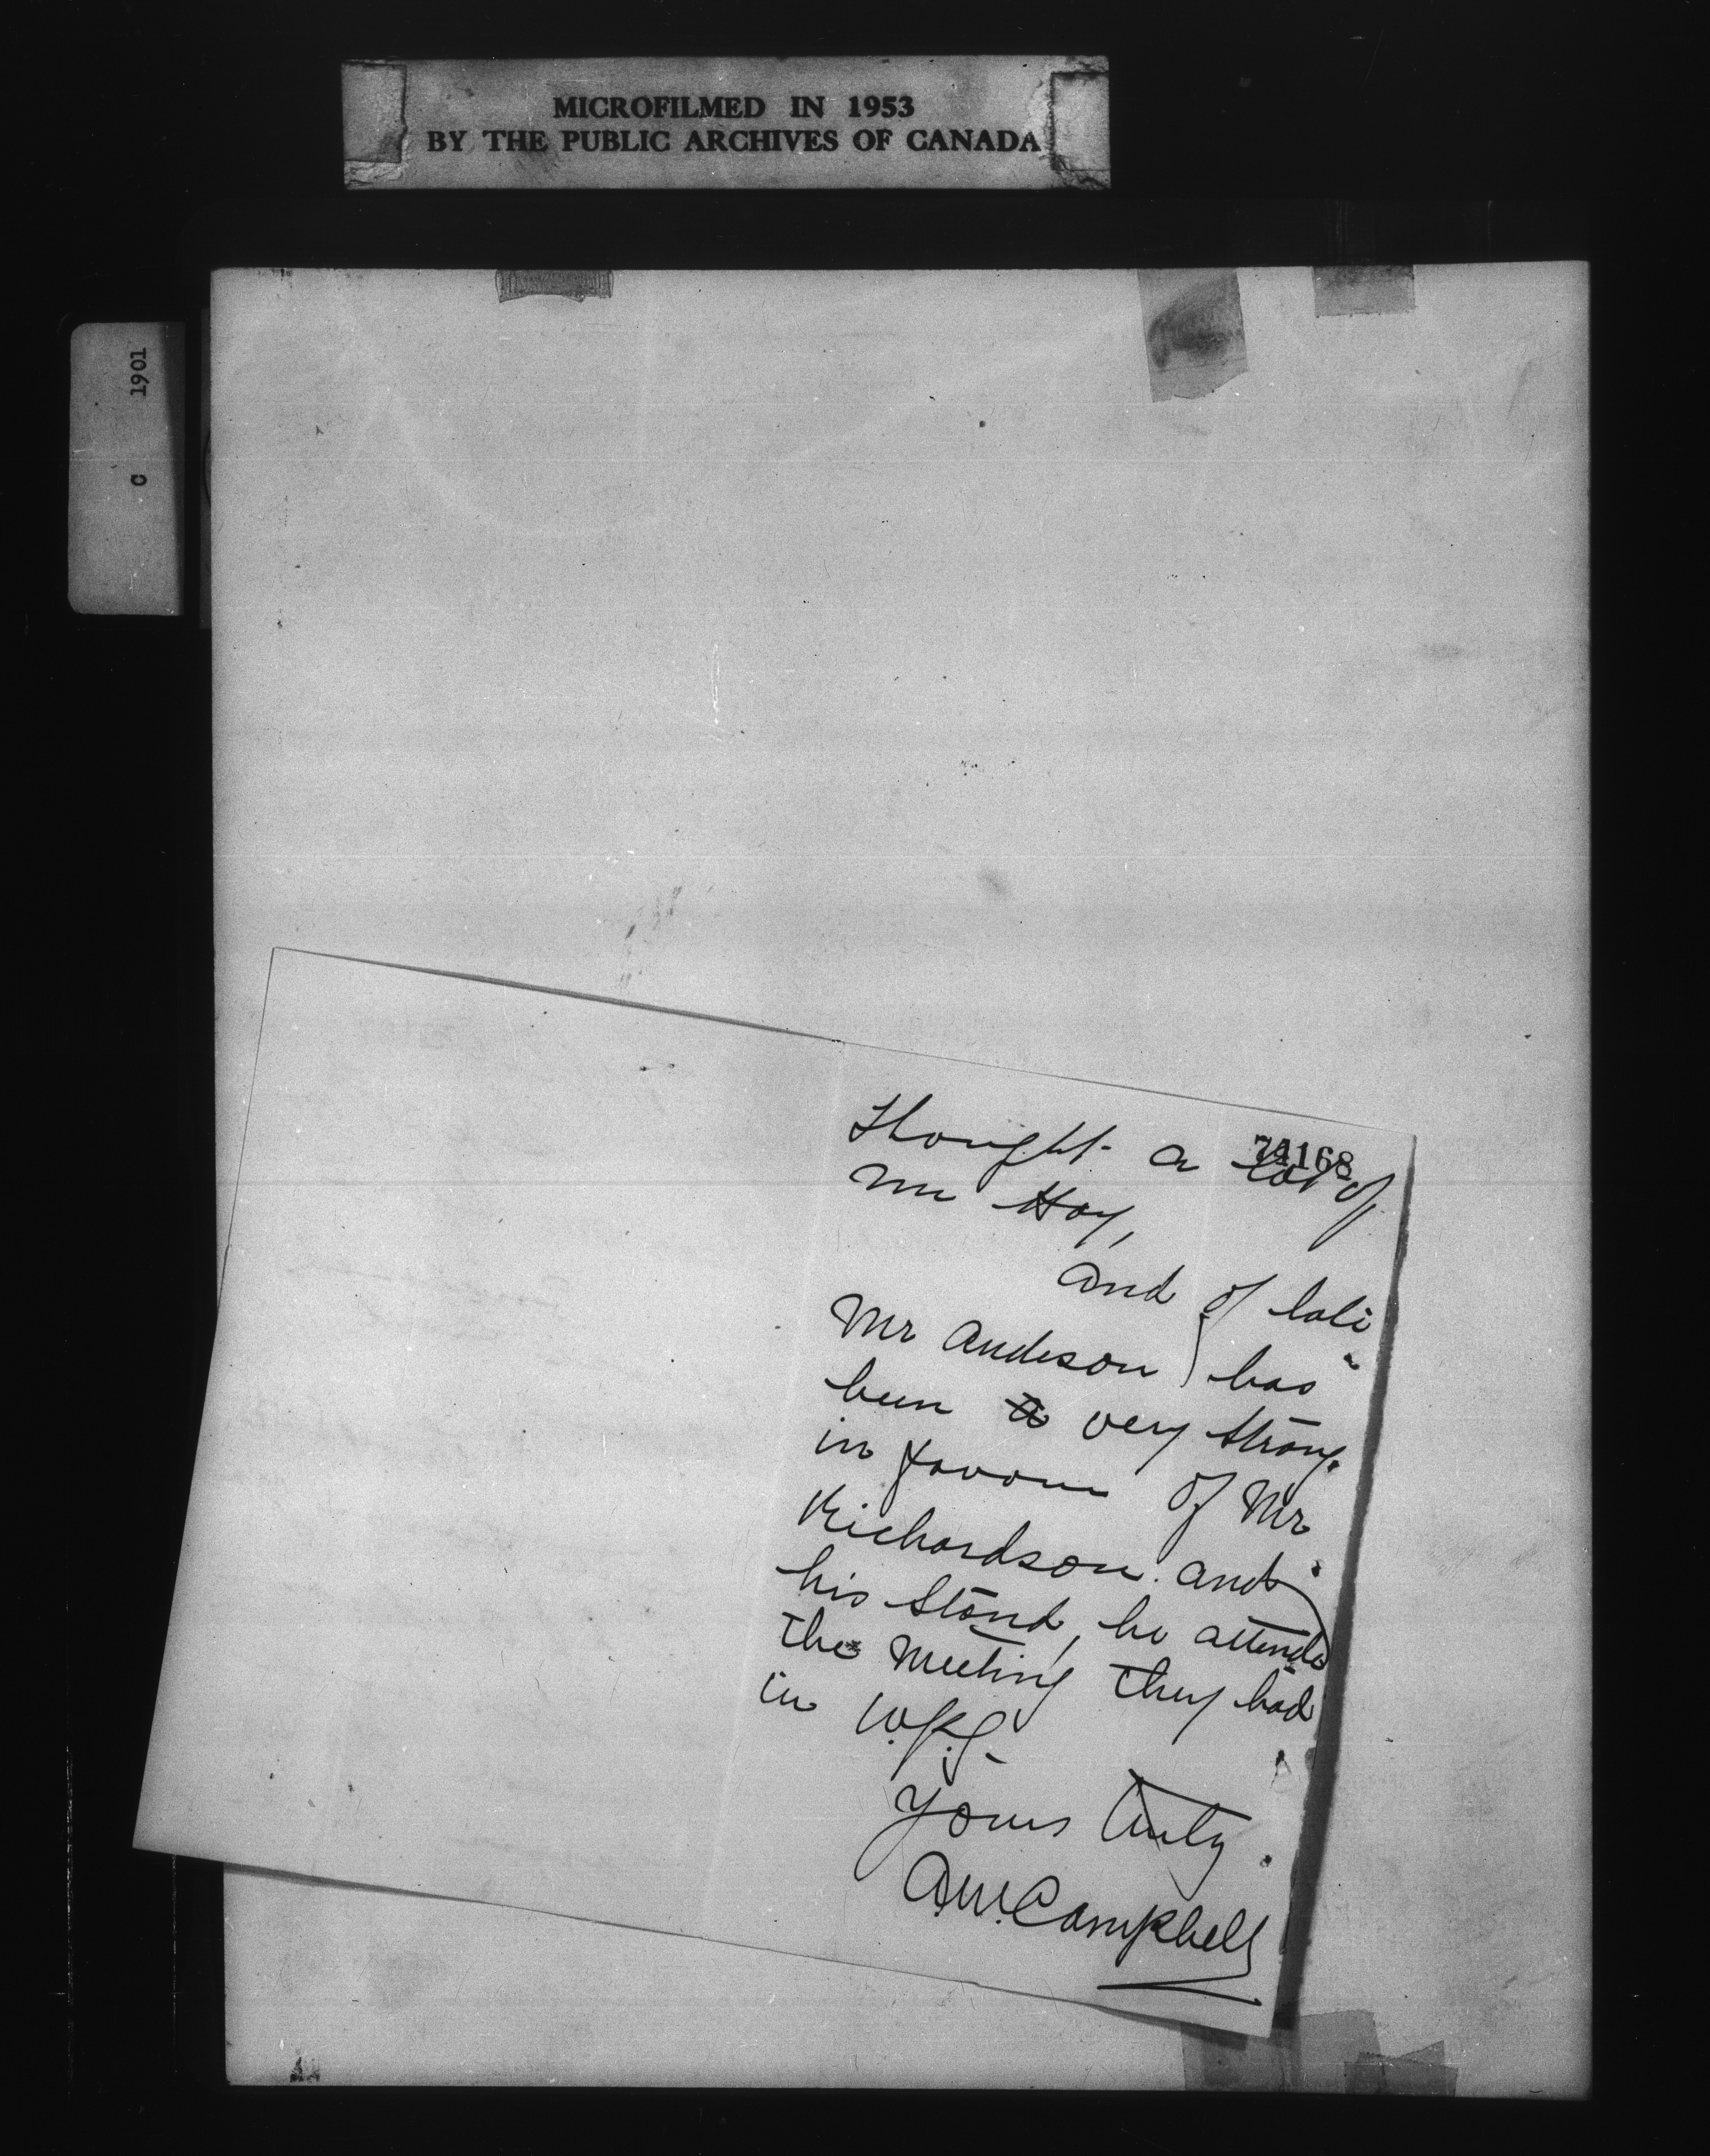 MICROFILMED IN 1953
BY THE PUBLIC ARCHIVES OF CANADA
C 1901
74168
thought a lot of
Mr Hay,
and of late
Mr Anderson has
been a very strong
in favour of Mr
Richardson and
his stand, he attended
the meeting they had
in Wpg.
Yours truly
A.W. Campbell